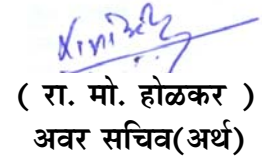 ( रा. मो. होळकर )
अवर सचिव(अर्थ)